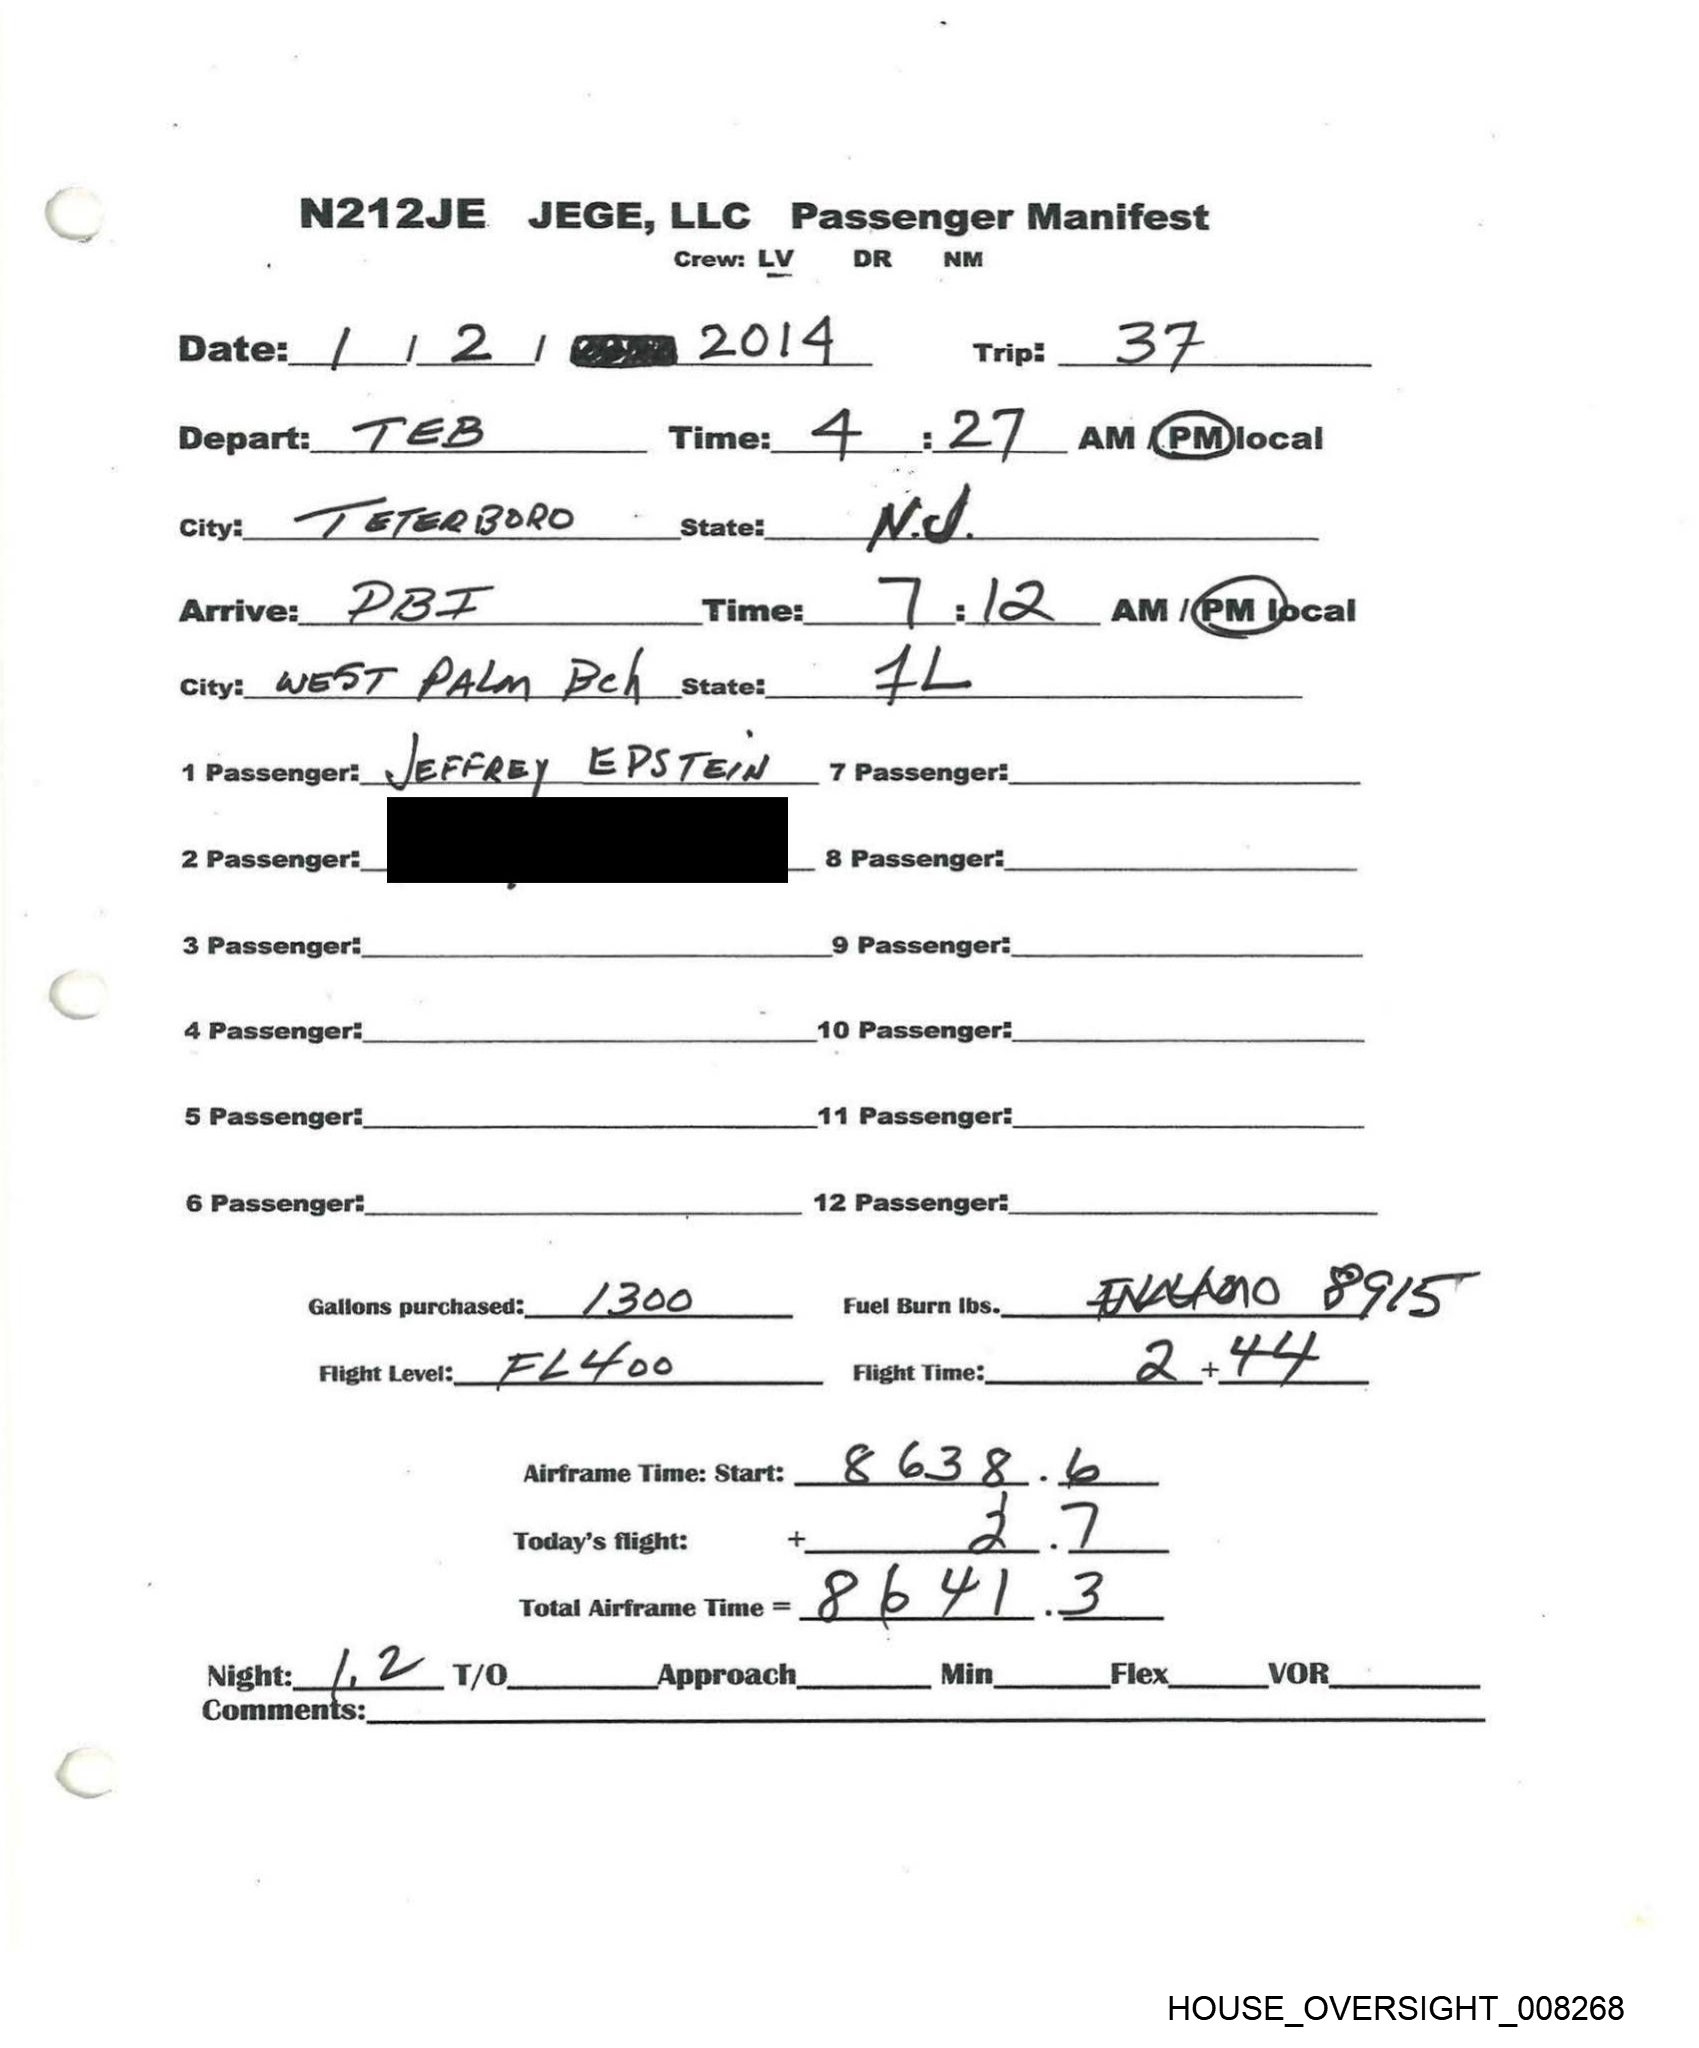 N212JE JEGE, LLC Passenger Manifest
Crew: LV DR NM
Date: 1 / 2 / 2014 Trip: 37
Depart: TEB Time: 4 : 27 AM / PM local
City: TETERBORO State: N.J.
Arrive: PBI Time: 7 : 12 AM / PM local
City: WEST PALM Bch State: FL
1 Passenger: JEFFREY EPSTEIN 7 Passenger:
2 Passenger: 8 Passenger:
3 Passenger: 9 Passenger:
4 Passenger: 10 Passenger:
5 Passenger: 11 Passenger:
6 Passenger: 12 Passenger:
Gallons purchased: 1300 Fuel Burn lbs. 8915
Flight Level: FL400 Flight Time: 2 + 44
Airframe Time: Start: 8638 . 6
Today's flight: + 2 . 7
Total Airframe Time = 8641 . 3
Night: 1.2 T/O Approach Min Flex VOR
Comments:
HOUSE_OVERSIGHT_008268